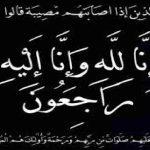 الذين إذا أصابتهم مصيبة قالوا
إِنَّا لِلَّهِ وَإِنَّا إِلَيْهِ
رَاجِعُونَ
عليهم صلوات من ربهم ورحمة وأولئك هم